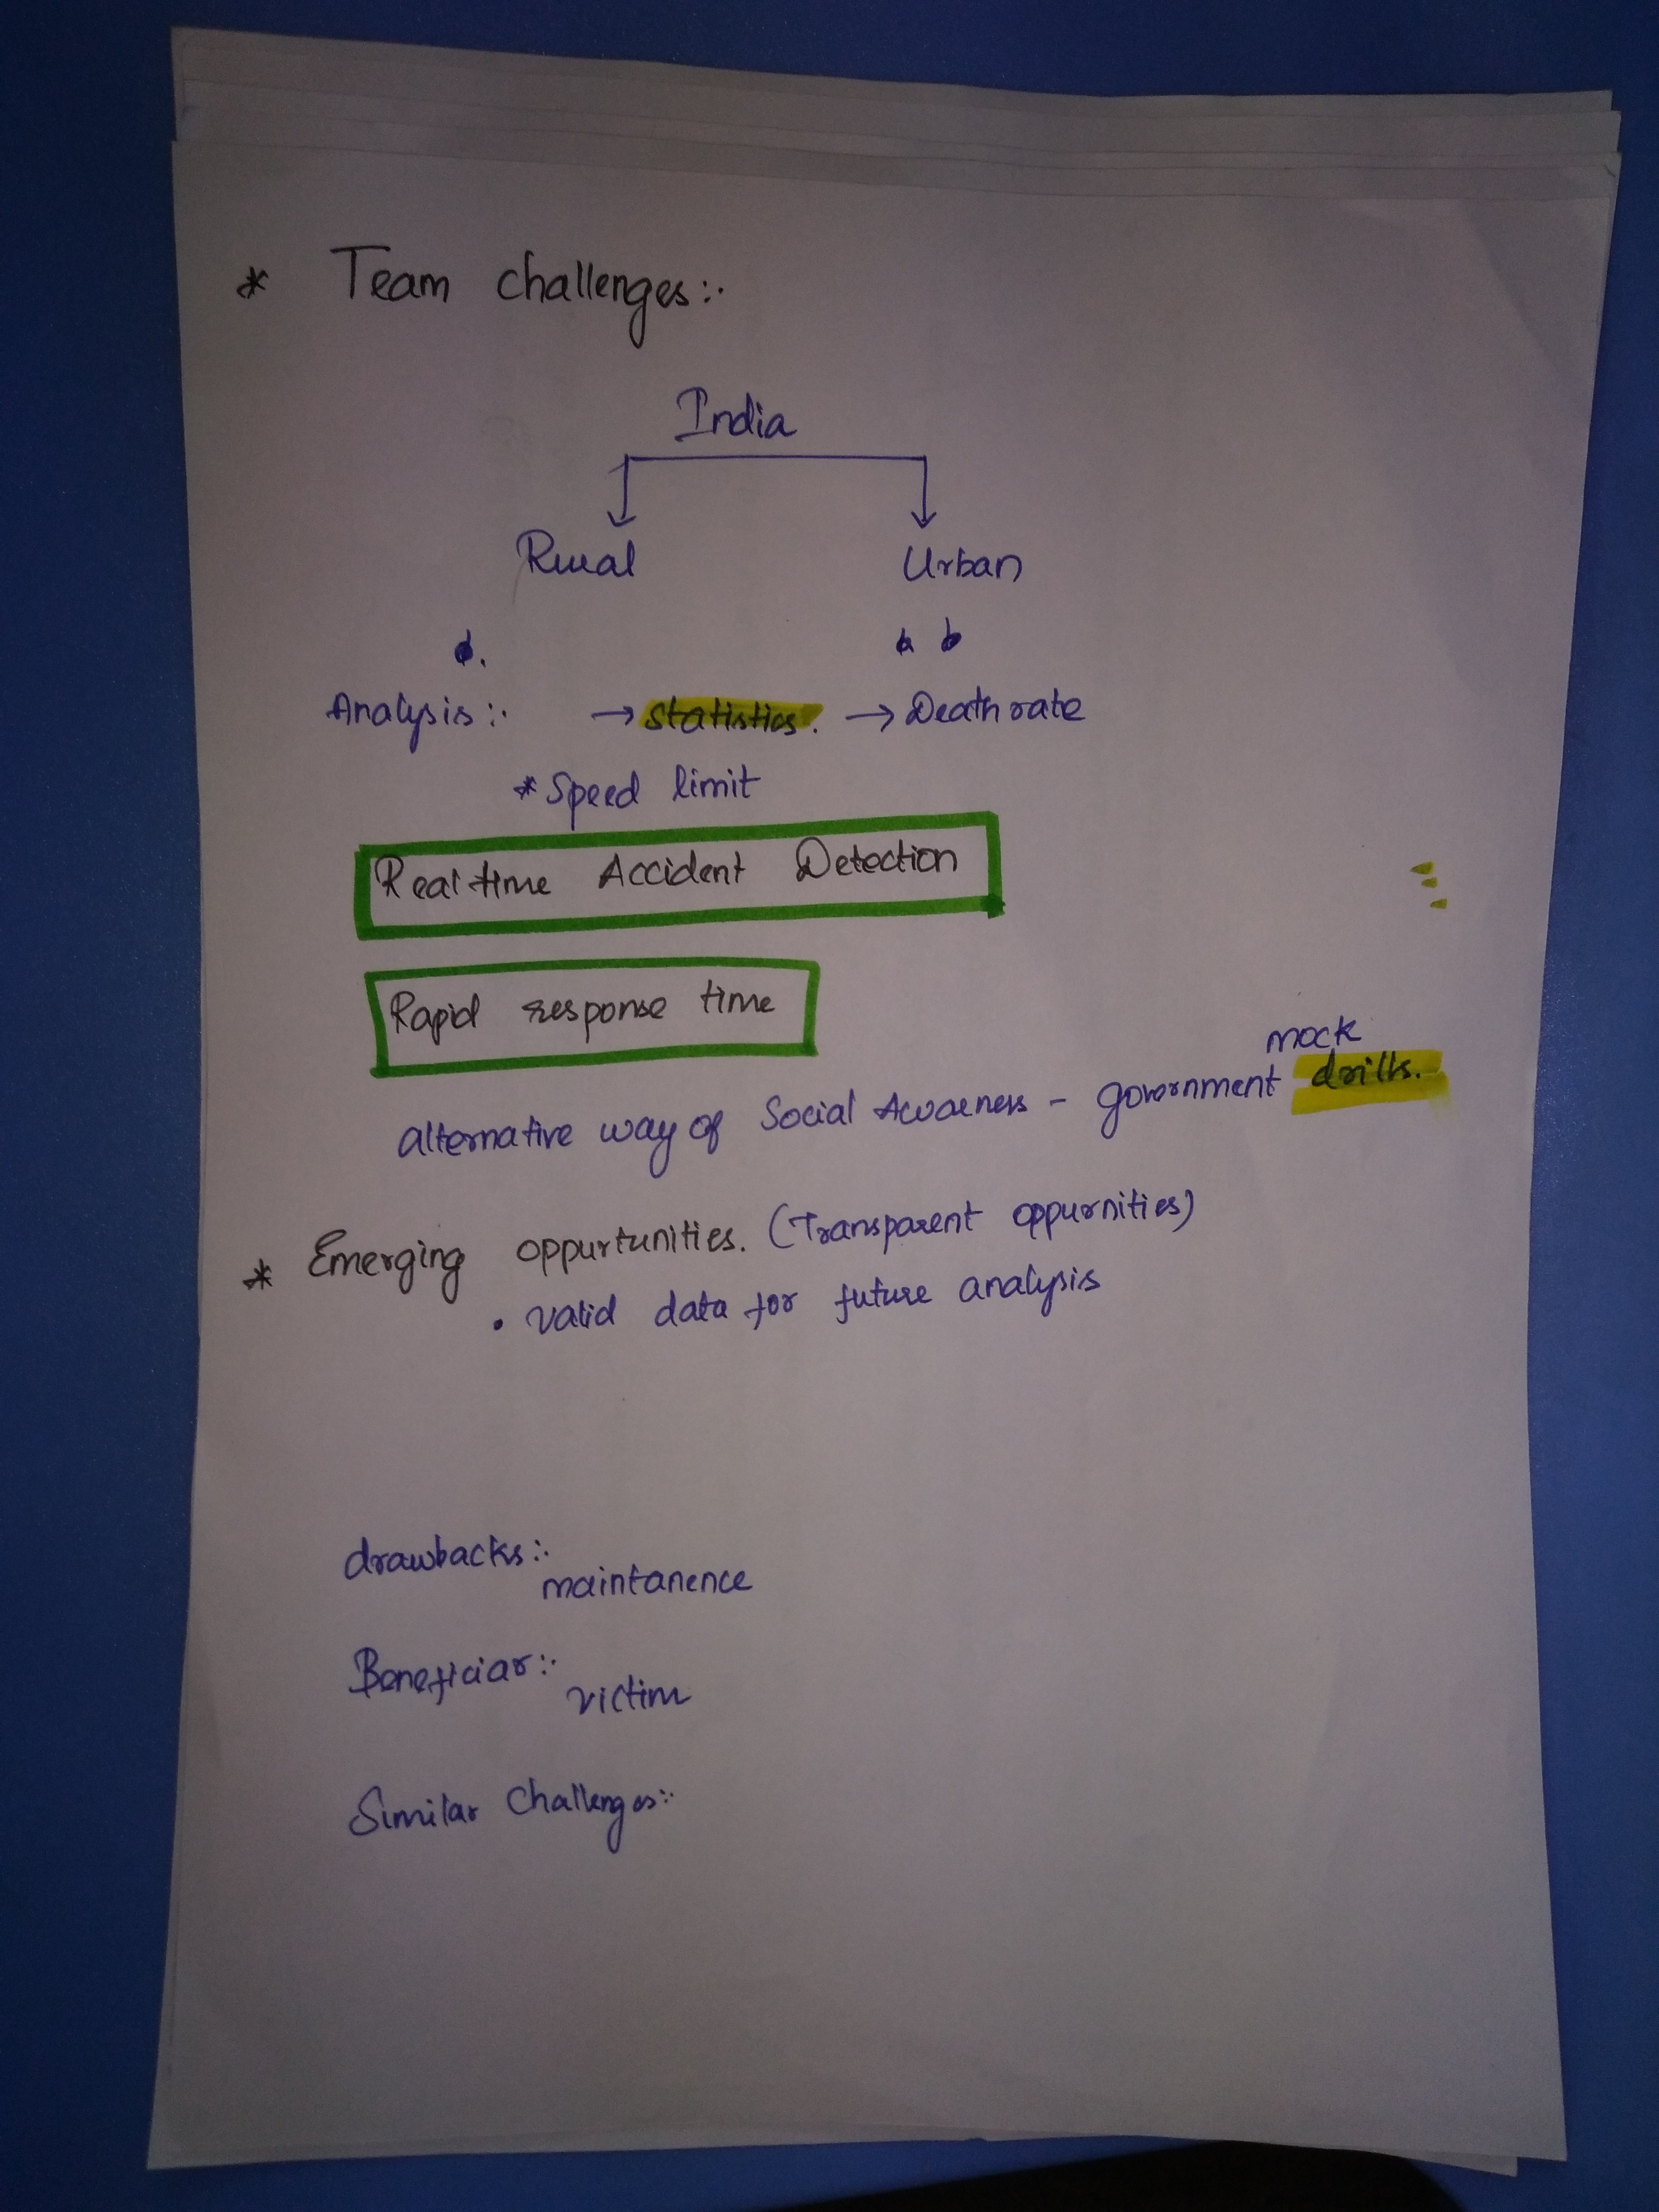 * Team challenges:.
India
Rural Urban
Analysis:. → statistics. → Death rate
* Speed limit
Real time Accident Detection
Rapid response time
mock
alternative way of Social Awareness - government drills.
* Emerging oppurtunities. (Transparent oppurnities)
• valid data for future analysis
drawbacks:.
maintanence
Beneficiar:.
victim
Similar Challenges:.